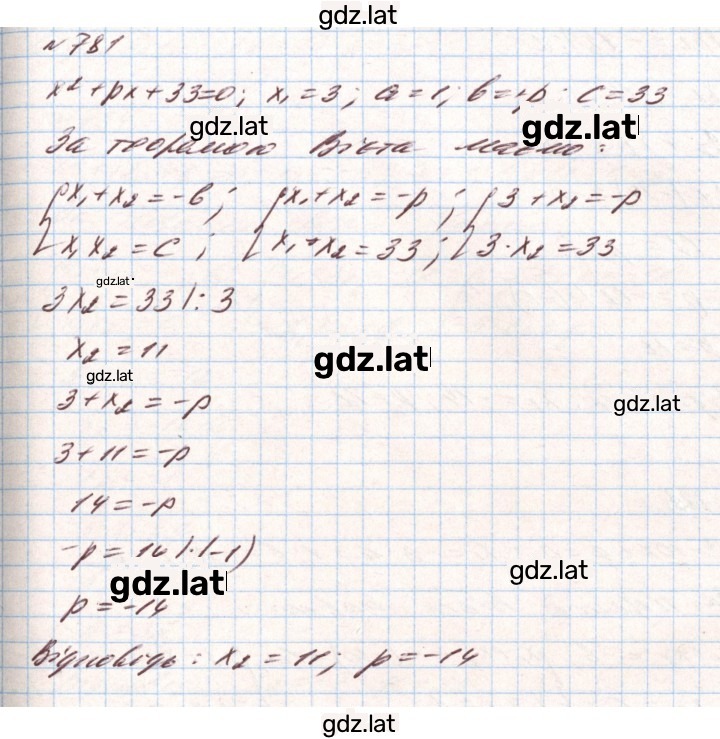 gdz.lat
№781
x²+px+33=0; x₁=3; a=1; b=p; c=33
gdz.lat
gdz.lat
За теоремою Вієта маємо:
{x₁+x₂=-b; {x₁+x₂=-p; {3+x₂=-p
{x₁x₂=c; {x₁·x₂=33; {3·x₂=33
gdz.lat
3x₂=33|:3
x₂=11
gdz.lat
gdz.lat
3+x₂=-p
gdz.lat
3+11=-p
14=-p
-p=14|·(-1)
gdz.lat
gdz.lat
p=-14
Відповідь: x₂=11; p=-14
gdz.lat